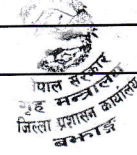 नेपाल सरकार
गृह मन्त्रालय
जिल्ला प्रशासन कार्यालय
बझाङ